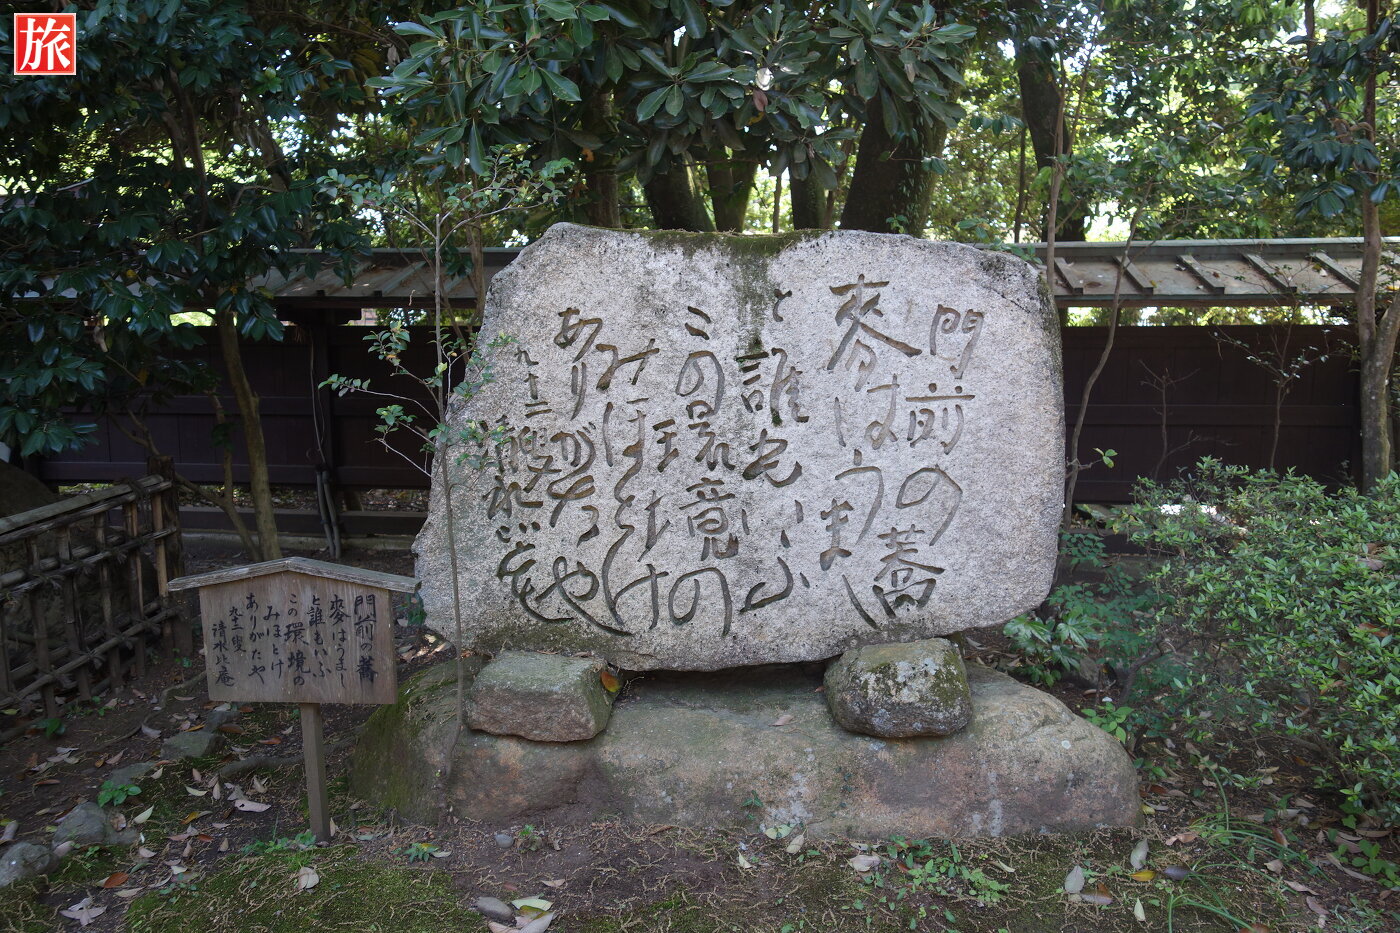 旅
門前の蕎
麥はうまし
と誰もいふ
この環境の
みほとけ
ありがたや
九十二叟
清水比庵
門前の蕎
麥はうまし
と誰もいふ
この環境の
みほとけ
ありがたや
九十二叟
清水比庵